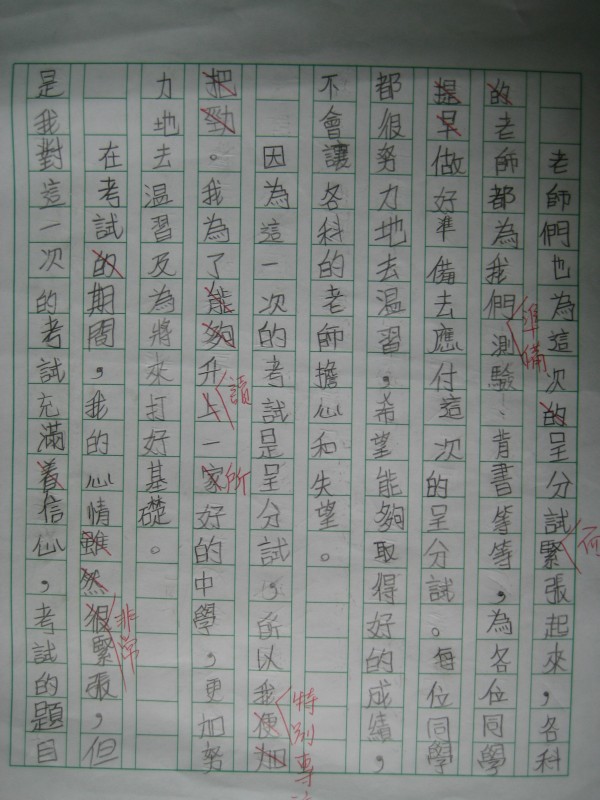 老師們也為這次的呈分試緊張起來，各科
的老師都為我們測驗、背書等等，為各位同學
準備
提早做好準備去應付這次的呈分試。每位同學
都很努力地去溫習，希望能夠取得好的成績，
不會讓各科的老師擔心和失望。
因為這一次的考試是呈分試，所以我便加
特別專
把勁。我為了能夠升上一家好的中學，更加努
讀
所
力地去溫習及為將來打好基礎。
在考試的期間，我的心情雖然很緊張，但
非常
是我對這一次的考試充滿着信心，考試的題目